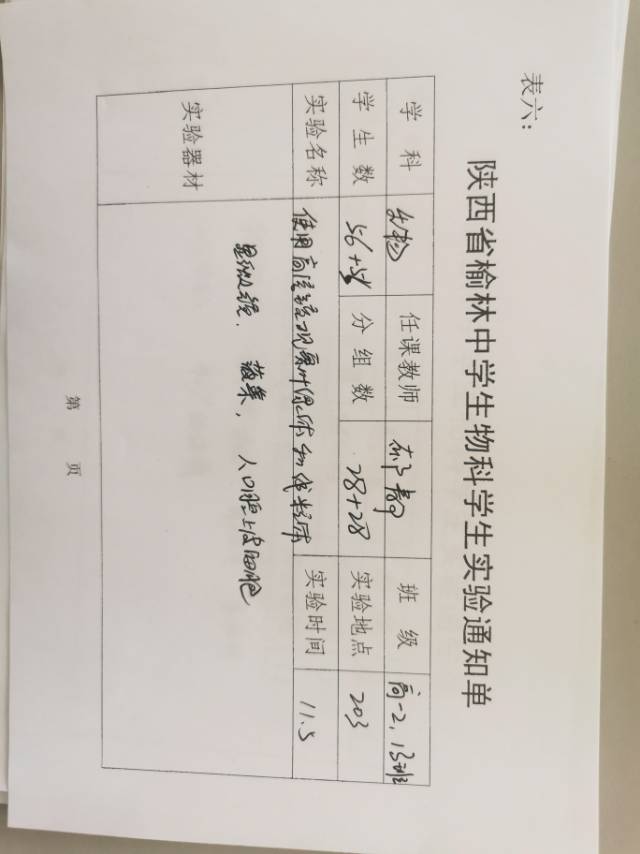 表六：
陕西省榆林中学生物科学生实验通知单
学科 生物 任课教师 班级 高一2，13班
学生数 56+56 分组数 28+28 实验地点 203
实验名称 使用高倍镜观察叶绿体和线粒体 实验时间 11.5
实验器材 显微镜．藓类，人口腔上皮细胞
第 页